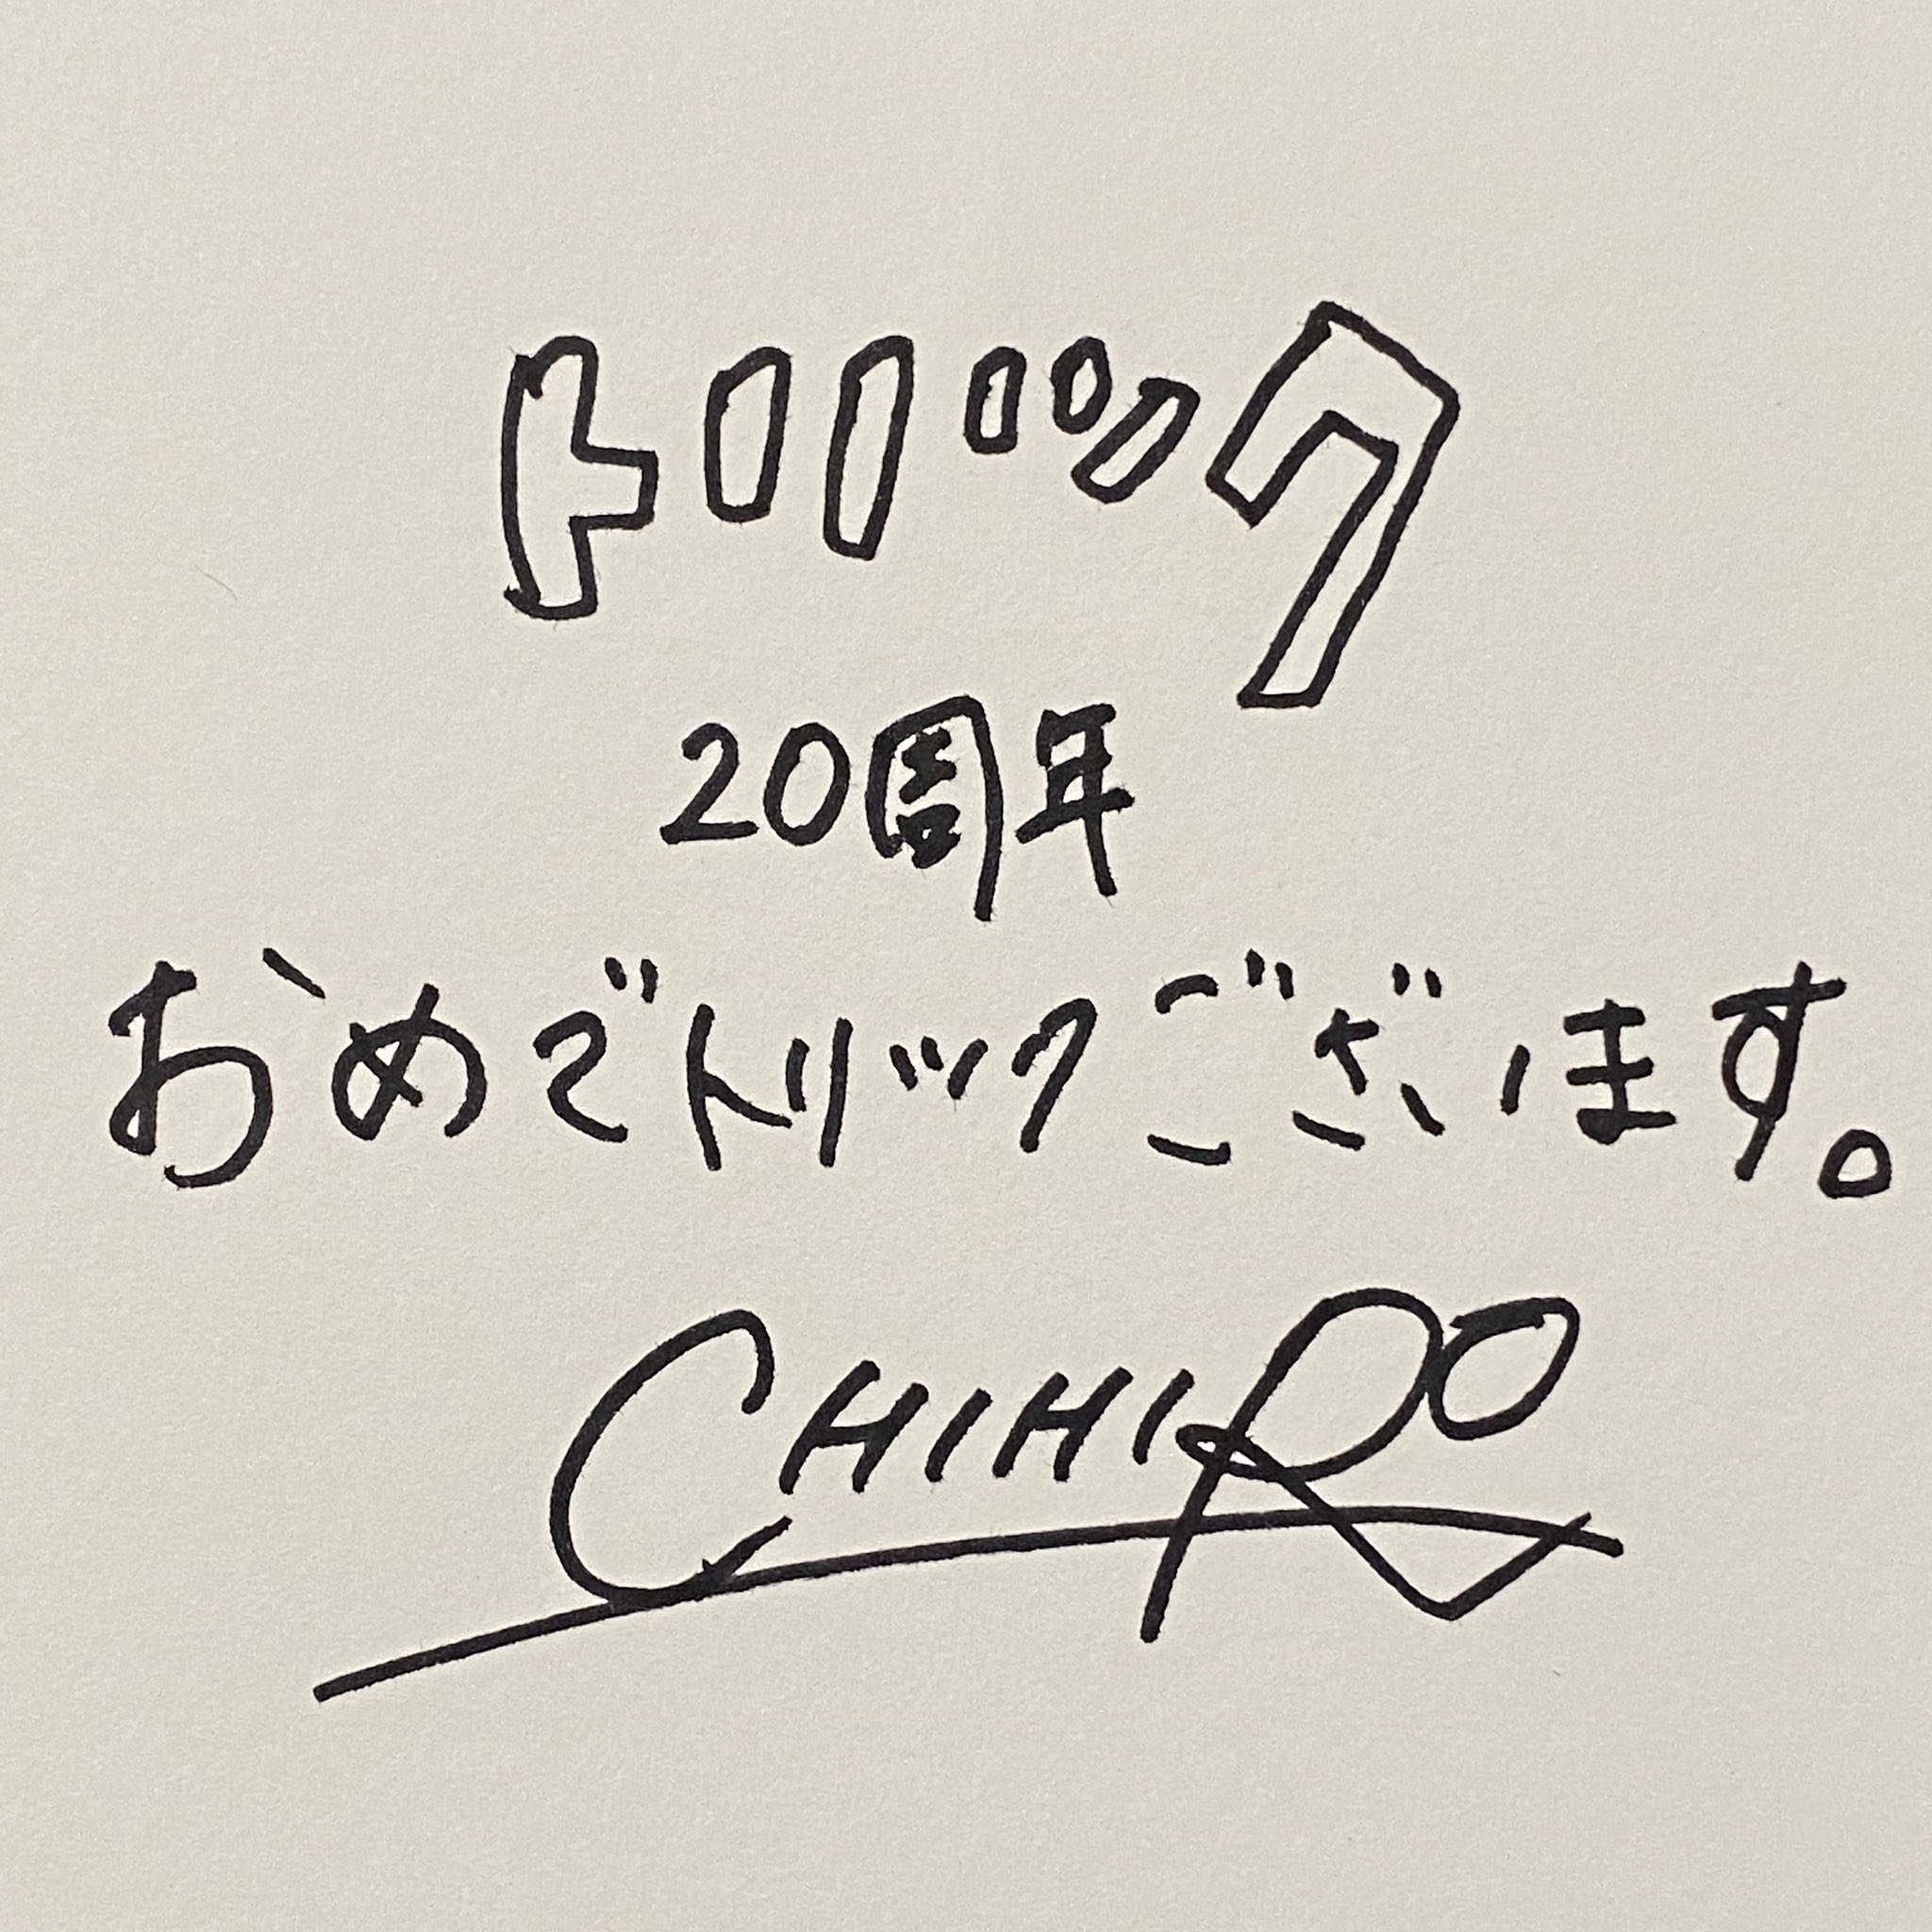 トリック
20周年
おめでトリックございます。
CHIHIRO